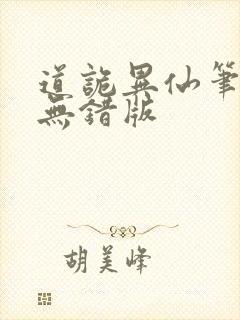 道詭異仙筆
無錯版
胡美峰